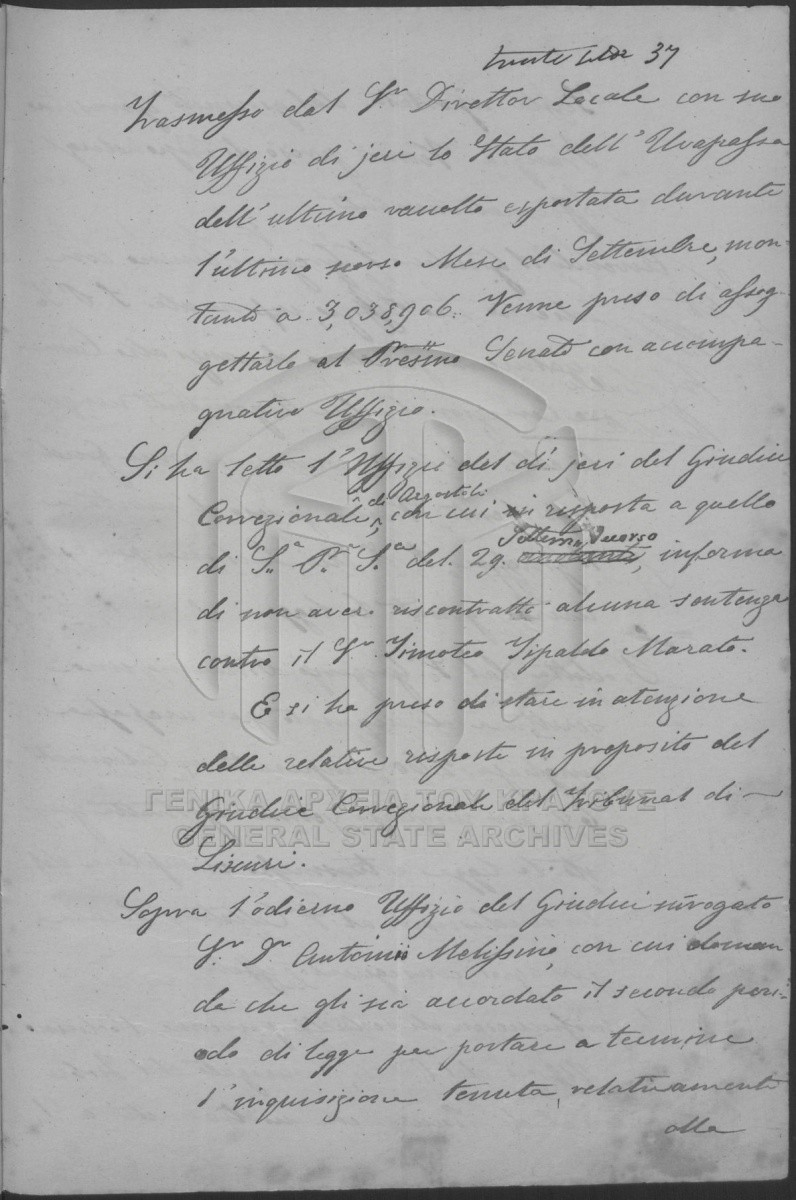 trenta sette 37
Trasmesso dal Sr. Direttor Locale con suo
Uffizio di jeri lo Stato dell' Uvapassa
dell' ultimo raccolto esportata durante
l'ultimo scorso Mese di Settembre, mon-
tante a 3,038,906. Venne preso di assog-
gettarlo al Presmo Senato con accompa-
gnativo Uffizio.
Si ha letto l'Uffizio del dì jeri del Giudice
Correzionale di Argostoli, con cui in risposta a quello
di S.a P.a S.a del. 29. Settembre Decorso, informa
di non aver riscontratto alcuna sentenza
contro il Sr. Timoteo Tipaldo Marato.
E si ha preso di stare in atenzione
delle relative risposte in proposito del
Giudice Correzionale del Tribunal di
Lixuri.
Sopra l'odierno Uffizio del Giudice surrogato
Sr. Dr. Antonio Melissino, con cui doman
da che gli sia accordato il secondo peri-
odo di legge per portare a termine
l'inquisizione tenuta, relativamente
alla
ΓΕΝΙΚΑ ΑΡΧΕΙΑ ΤΟΥ ΚΡΑΤΟΥΣ
GENERAL STATE ARCHIVES